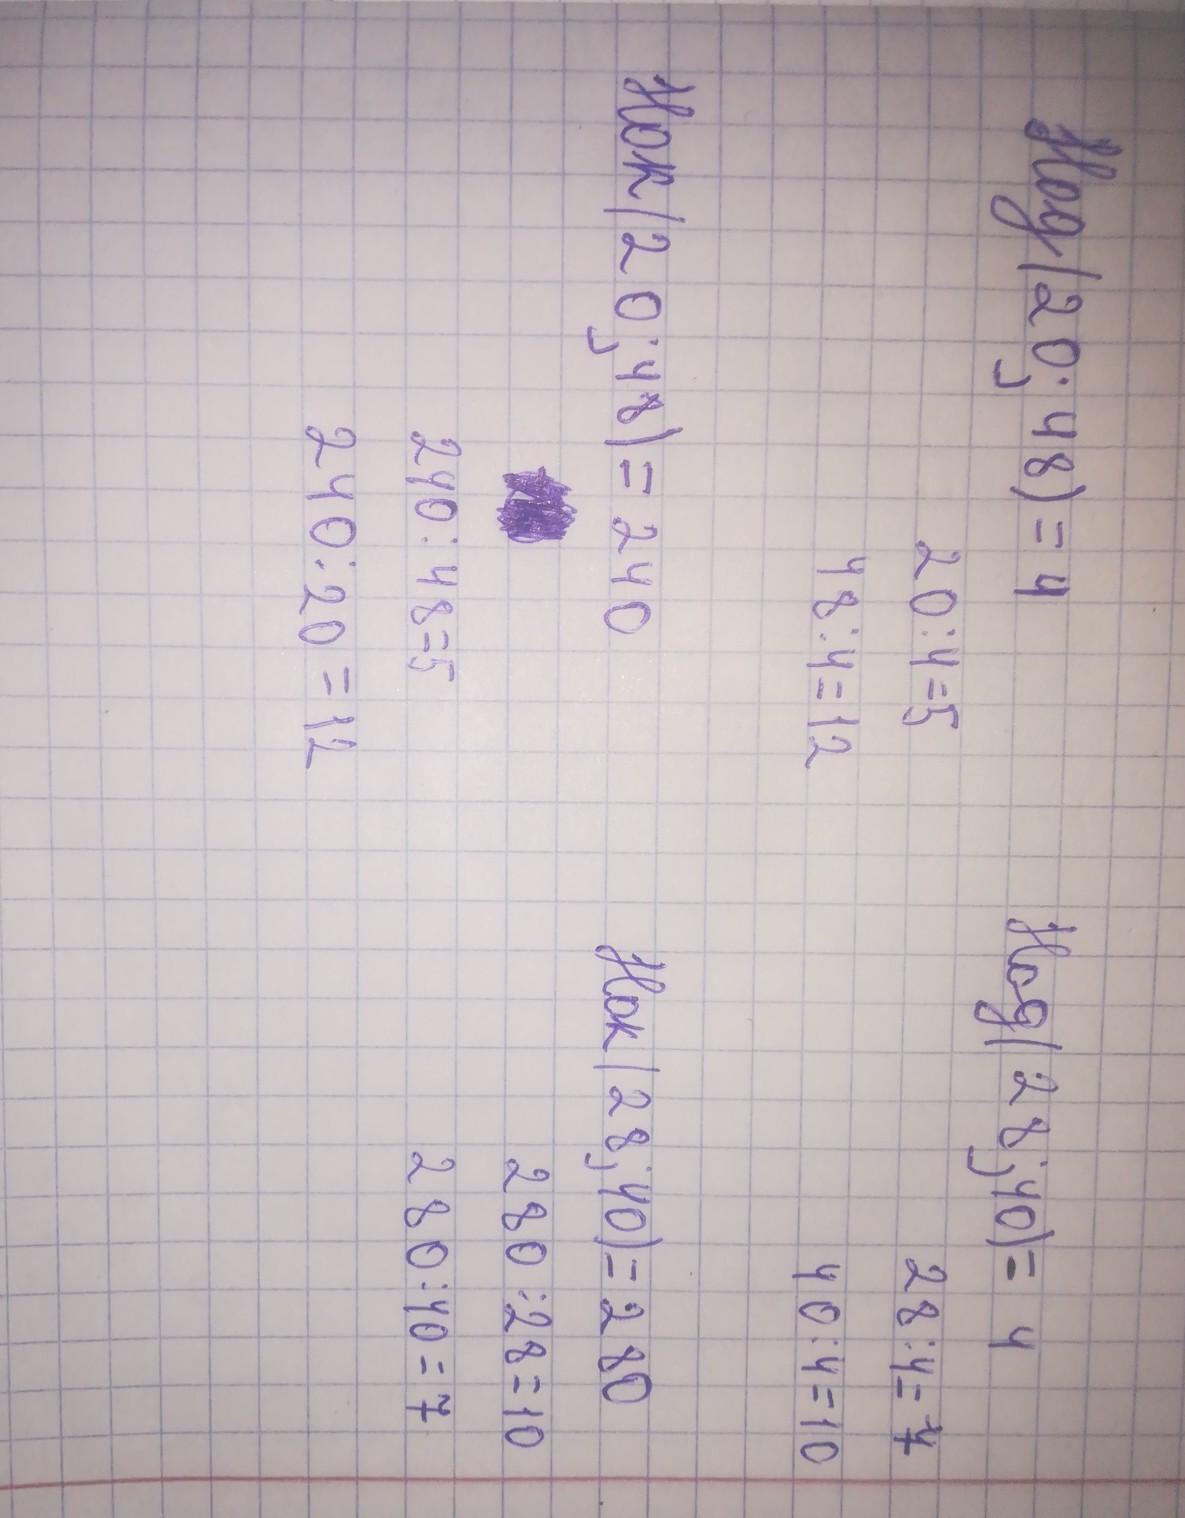 Нод(20; 48) = 4
20:4=5
48:4=12
Нок(20; 48) = 240
240:48=5
240:20=12
Нод(28; 40) = 4
28:4=7
40:4=10
Нок(28; 40) = 280
280:28=10
280:40=7